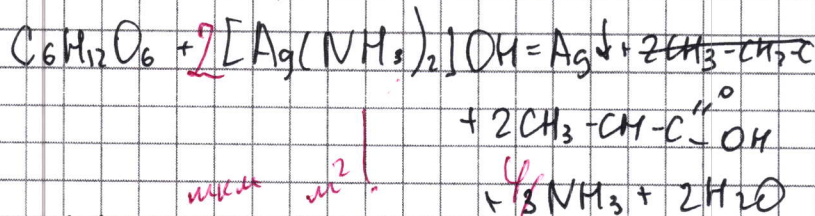 C6H12O6 + 2[Ag(NH3)2]OH = Ag↓ + 2CH3-CH2-C
+ 2CH3-CH-C=O-OH
мкм м² ! + 4 NH3 + 2H2O